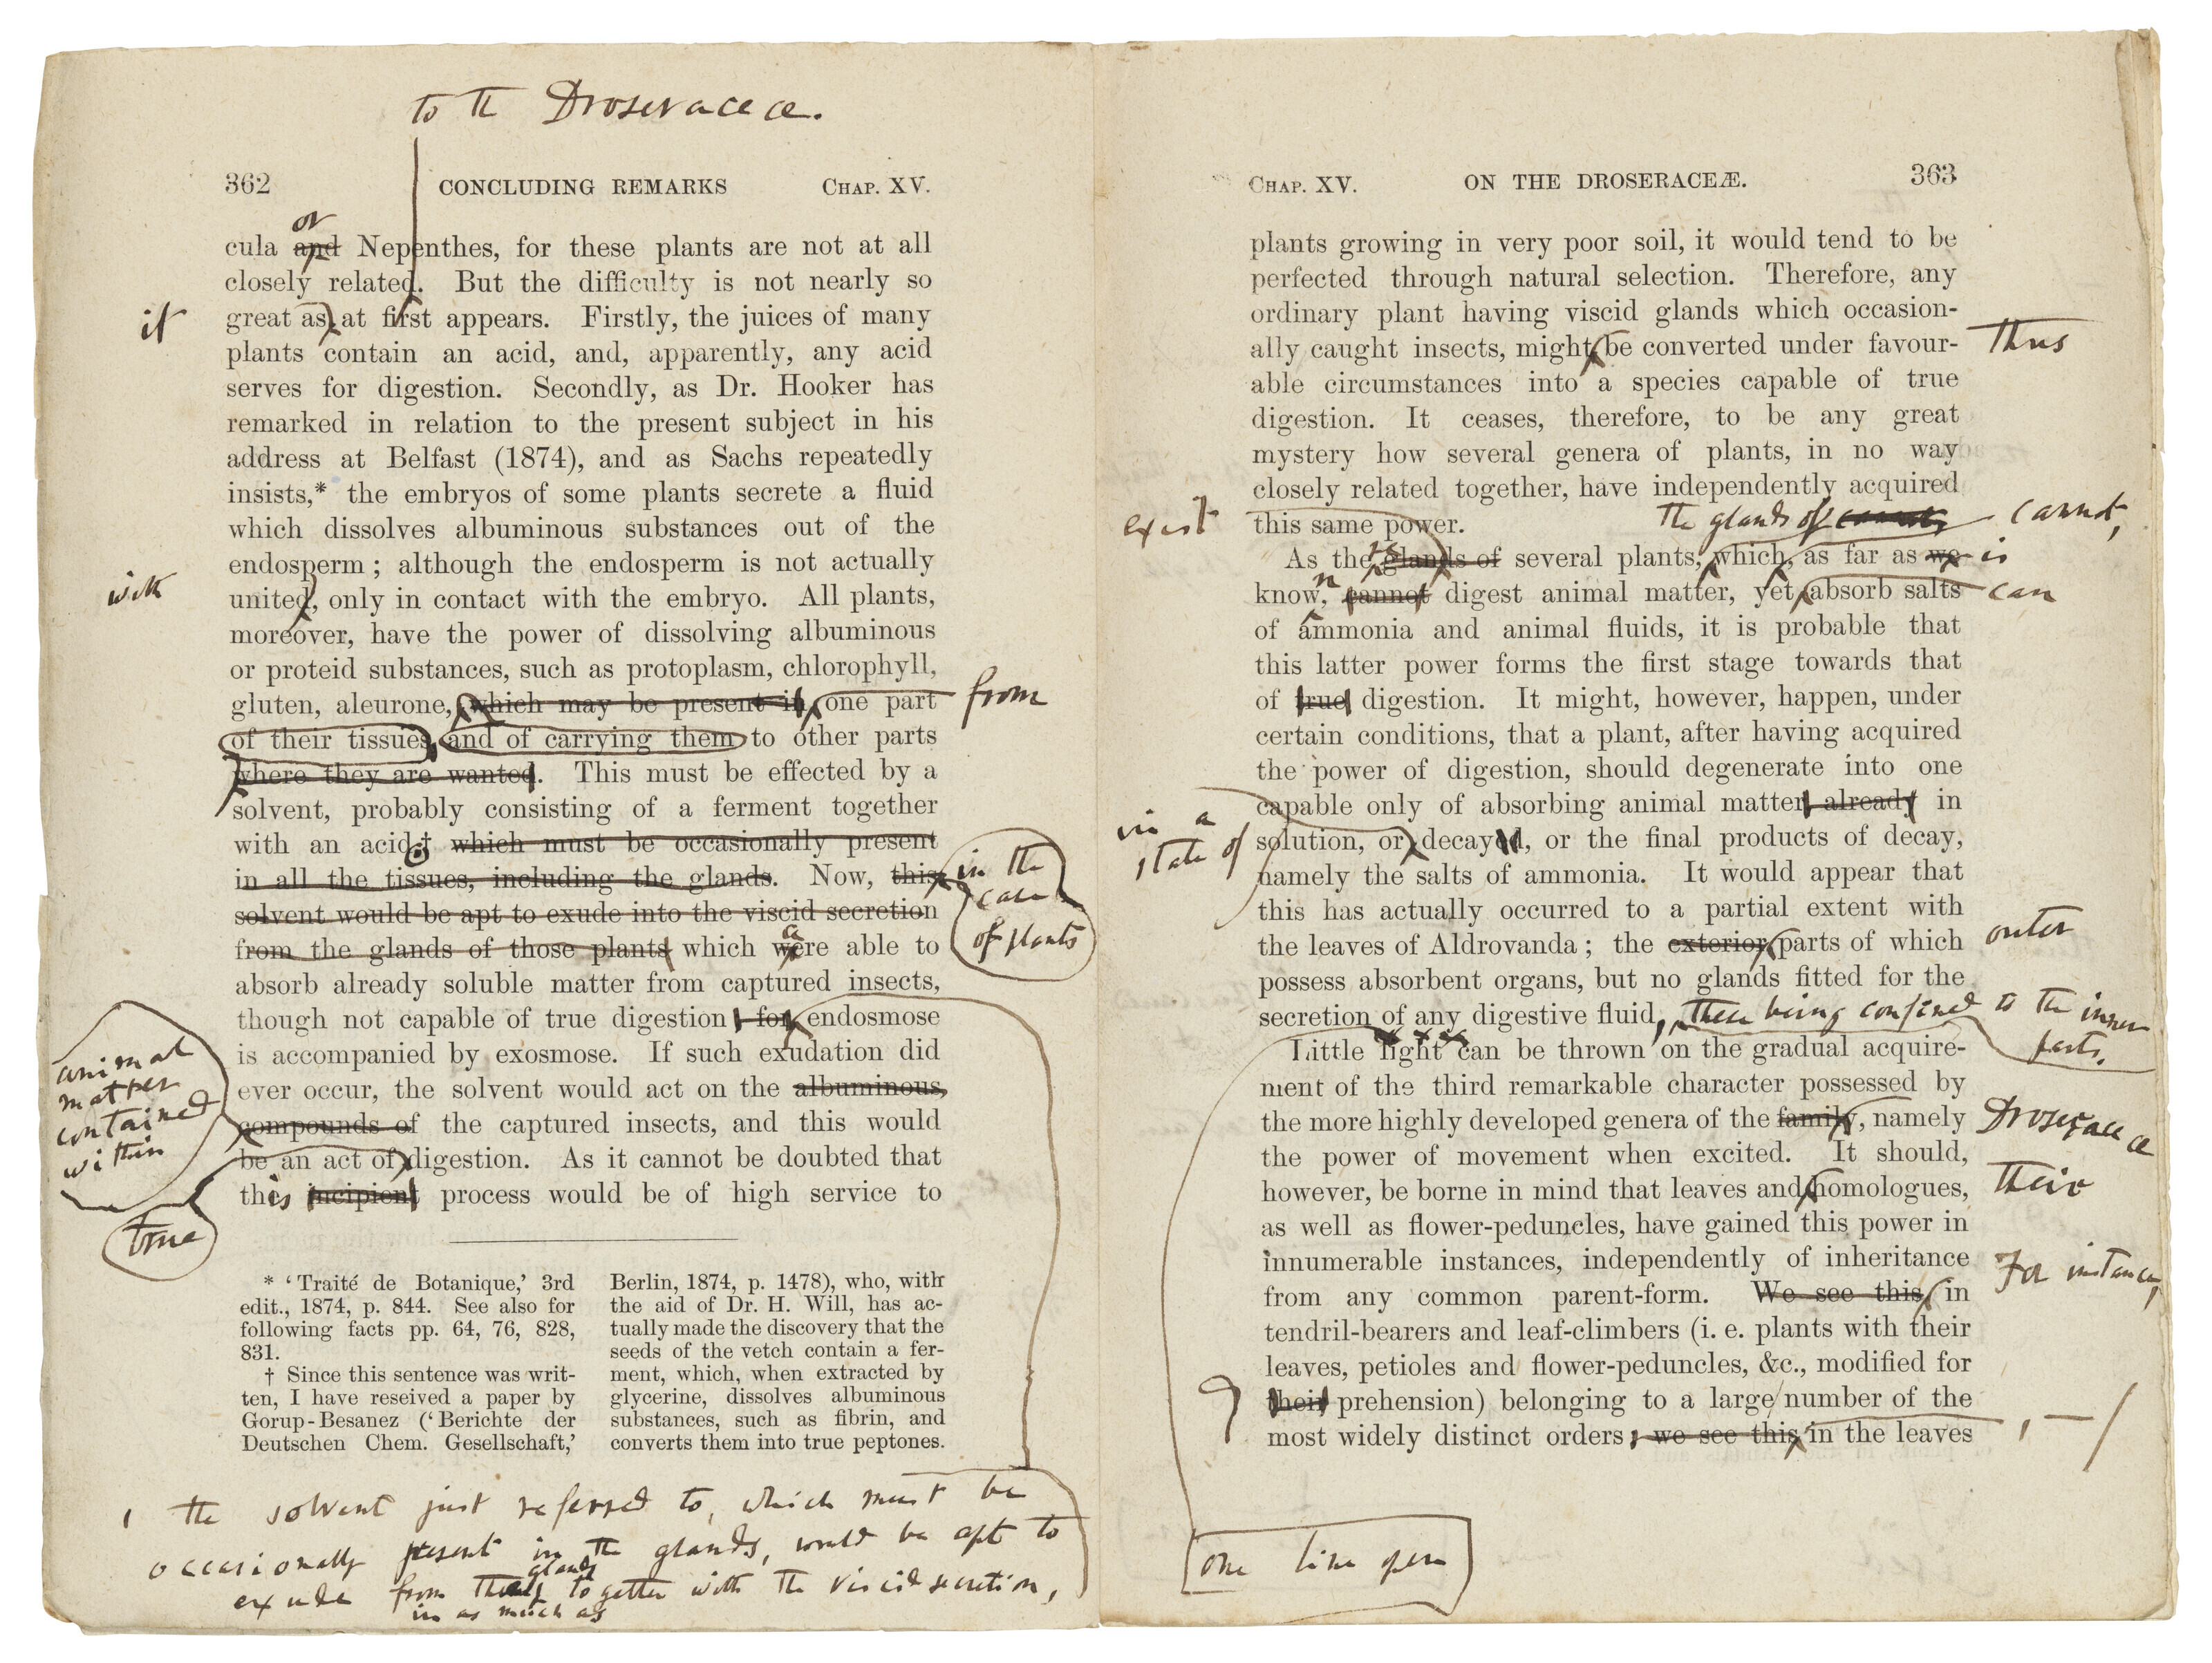 to the Droseraceæ.
362 CONCLUDING REMARKS CHAP. XV.
or
cula and Nepenthes, for these plants are not at all
closely related. But the difficulty is not nearly so
it great as at first appears. Firstly, the juices of many
plants contain an acid, and, apparently, any acid
serves for digestion. Secondly, as Dr. Hooker has
remarked in relation to the present subject in his
address at Belfast (1874), and as Sachs repeatedly
insists,* the embryos of some plants secrete a fluid
which dissolves albuminous substances out of the
endosperm; although the endosperm is not actually
with united, only in contact with the embryo. All plants,
moreover, have the power of dissolving albuminous
or proteid substances, such as protoplasm, chlorophyll,
gluten, aleurone, which may be present in one part from
of their tissues, and of carrying them to other parts
where they are wanted. This must be effected by a
solvent, probably consisting of a ferment together
with an acid.† which must be occasionally present
in all the tissues, including the glands. Now, this in the
solvent would be apt to exude into the viscid secretion case
from the glands of those plants which were able to of plants
a
absorb already soluble matter from captured insects,
though not capable of true digestion for endosmose
is accompanied by exosmose. If such exudation did
ever occur, the solvent would act on the albuminous
compounds of the captured insects, and this would
be an act of digestion. As it cannot be doubted that
this incipient process would be of high service to
animal
matter
contained
within
true
* ‘Traité de Botanique,’ 3rd
edit., 1874, p. 844. See also for
following facts pp. 64, 76, 828,
831.
† Since this sentence was writ-
ten, I have reseived a paper by
Gorup-Besanez (‘Berichte der
Deutschen Chem. Gesellschaft,’
Berlin, 1874, p. 1478), who, with
the aid of Dr. H. Will, has ac-
tually made the discovery that the
seeds of the vetch contain a fer-
ment, which, when extracted by
glycerine, dissolves albuminous
substances, such as fibrin, and
converts them into true peptones.
, the solvent just referred to, which must be
occasionally present in the glands, would be apt to
glands
exude from together with the viscid secretion,
in as much as
CHAP. XV. ON THE DROSERACEÆ. 363
plants growing in very poor soil, it would tend to be
perfected through natural selection. Therefore, any
ordinary plant having viscid glands which occasion-
ally caught insects, might be converted under favour- thus
able circumstances into a species capable of true
digestion. It ceases, therefore, to be any great
mystery how several genera of plants, in no way
closely related together, have independently acquired
exist this same power. the glands of cannot,
As the glands of several plants, which, as far as we is
re
know, cannot digest animal matter, yet absorb salts can
n
of ammonia and animal fluids, it is probable that
this latter power forms the first stage towards that
of true digestion. It might, however, happen, under
certain conditions, that a plant, after having acquired
the power of digestion, should degenerate into one
capable only of absorbing animal matter already in
in a
state of
solution, or decayed, or the final products of decay,
namely the salts of ammonia. It would appear that
this has actually occurred to a partial extent with
the leaves of Aldrovanda; the exterior parts of which outer
possess absorbent organs, but no glands fitted for the
secretion of any digestive fluid, these being confined to the inner
parts.
Little light can be thrown on the gradual acquire-
ment of the third remarkable character possessed by
the more highly developed genera of the family, namely Droseraceæ
the power of movement when excited. It should,
however, be borne in mind that leaves and homologues, their
as well as flower-peduncles, have gained this power in
innumerable instances, independently of inheritance
from any common parent-form. We see this in For instance,
tendril-bearers and leaf-climbers (i. e. plants with their
leaves, petioles and flower-peduncles, &c., modified for
their prehension) belonging to a large number of the
most widely distinct orders, we see this in the leaves , — /
one line open